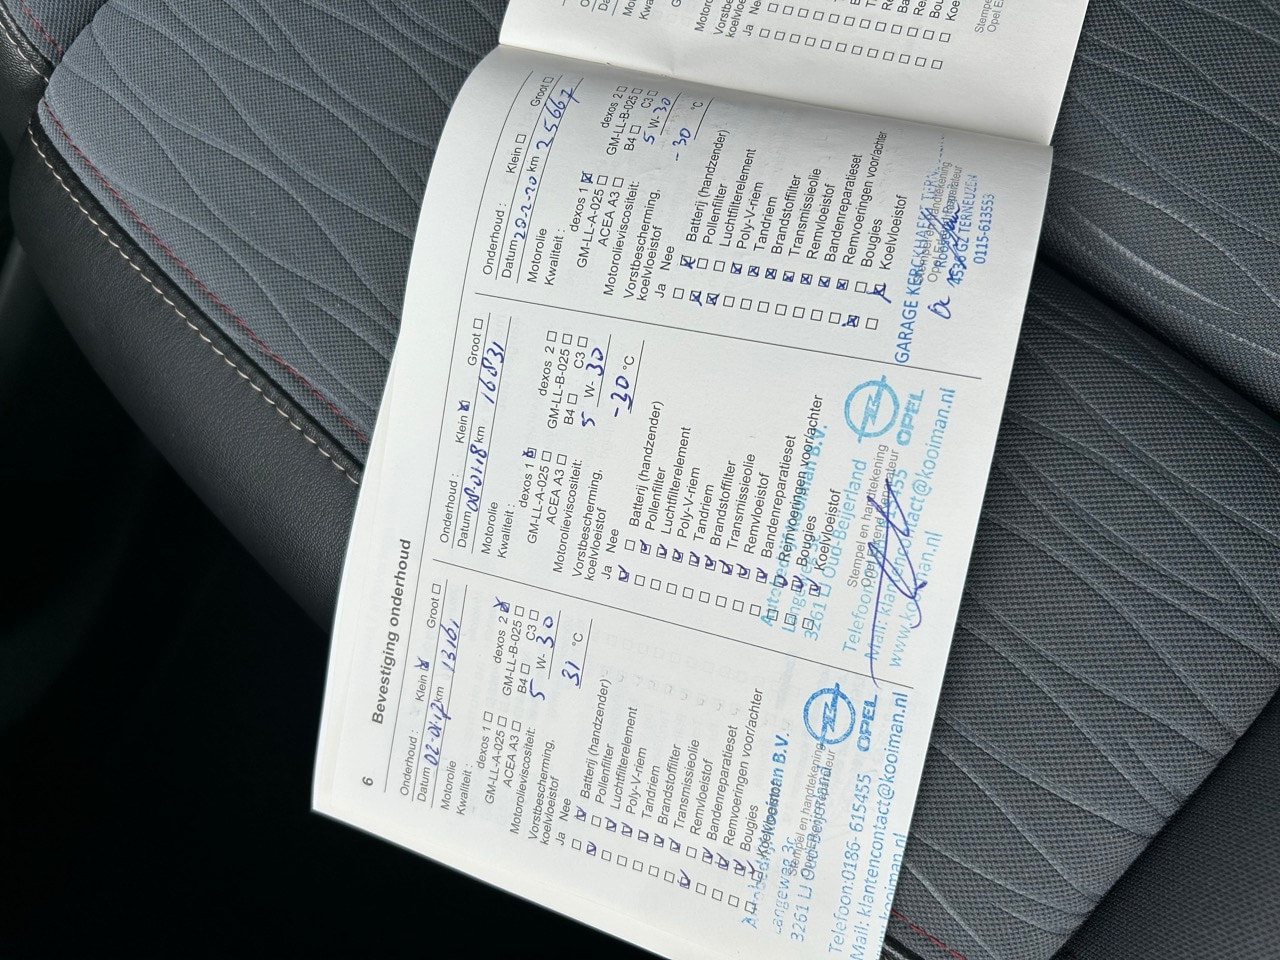 6
Bevestiging onderhoud
Onderhoud: Klein Groot
Datum 02-01-17 km 1316,
Motorolie
Kwaliteit: dexos 1 dexos 2
GM-LL-A-025 GM-LL-B-025
ACEA A3 B4 C3
Motorolieviscositeit: 5 W-30
Vorstbescherming,
koelvloeistof 31 °C
Ja Nee
Batterij (handzender)
Pollenfilter
Luchtfilterelement
Poly-V-riem
Tandriem
Brandstoffilter
Transmissieolie
Remvloeistof
Bandenreparatieset
Remvoeringen voor/achter
Bougies
Koelvloeistof
Stempel en handtekening
Langeweg
3261 LJ Oud-Beijerland
Telefoon:0186-615455 OPEL
Mail: klantencontact@kooiman.nl
Onderhoud: Klein Groot
Datum 08-01-18 km 16831
Motorolie
Kwaliteit: dexos 1 dexos 2
GM-LL-A-025 GM-LL-B-025
ACEA A3 B4 C3
Motorolieviscositeit: 5 W-30
Vorstbescherming,
koelvloeistof -30 °C
Ja Nee
Batterij (handzender)
Pollenfilter
Luchtfilterelement
Poly-V-riem
Tandriem
Brandstoffilter
Transmissieolie
Remvloeistof
Bandenreparatieset
Remvoeringen voor/achter
Bougies
Koelvloeistof
3261 LJ Oud-Beijerland
Stempel en handtekening
OPEL
www.kooiman.nl
Onderhoud: Klein Groot
Datum 20-2-20 km 25667
Motorolie
Kwaliteit: dexos 1 dexos 2
GM-LL-A-025 GM-LL-B-025
ACEA A3 B4 C3
Motorolieviscositeit: 5 W-30
Vorstbescherming,
koelvloeistof -30 °C
Ja Nee
Batterij (handzender)
Pollenfilter
Luchtfilterelement
Poly-V-riem
Tandriem
Brandstoffilter
Transmissieolie
Remvloeistof
Bandenreparatieset
Remvoeringen voor/achter
Bougies
Koelvloeistof
GARAGE KERCKHAERT
TERNEUZEN
0115-613553